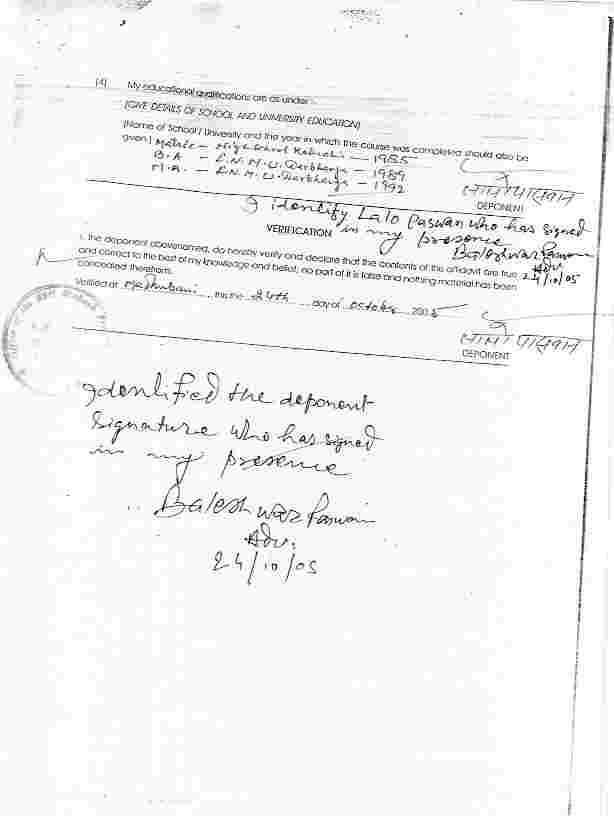 (4) My educational qualifications are as under :
(GIVE DETAILS OF SCHOOL AND UNIVERSITY EDUCATION)
(Name of School / University and the year in which the course was completed should also be
given.) Matric - High School - 1985
B.A - L.N.M.U. Darbhanga - 1989
M.A. - L.N.M.U. Darbhanga - 1992
DEPONENT
I identify Lalo Paswan who has signed
in my presence
VERIFICATION
Baleshwar Paswan
Adv
24/10/05
I, the deponent abovenamed, do hereby verify and declare that the contents of the affidavit are true
and correct to the best of my knowledge and belief; no part of it is false and nothing material has been
concealed therefrom.
Verified at Madhubani this the 24th day of October 2005
DEPONENT
Identified the deponent
Signature who has signed
in my presence
Baleshwar Paswan
Adv.
24/10/05